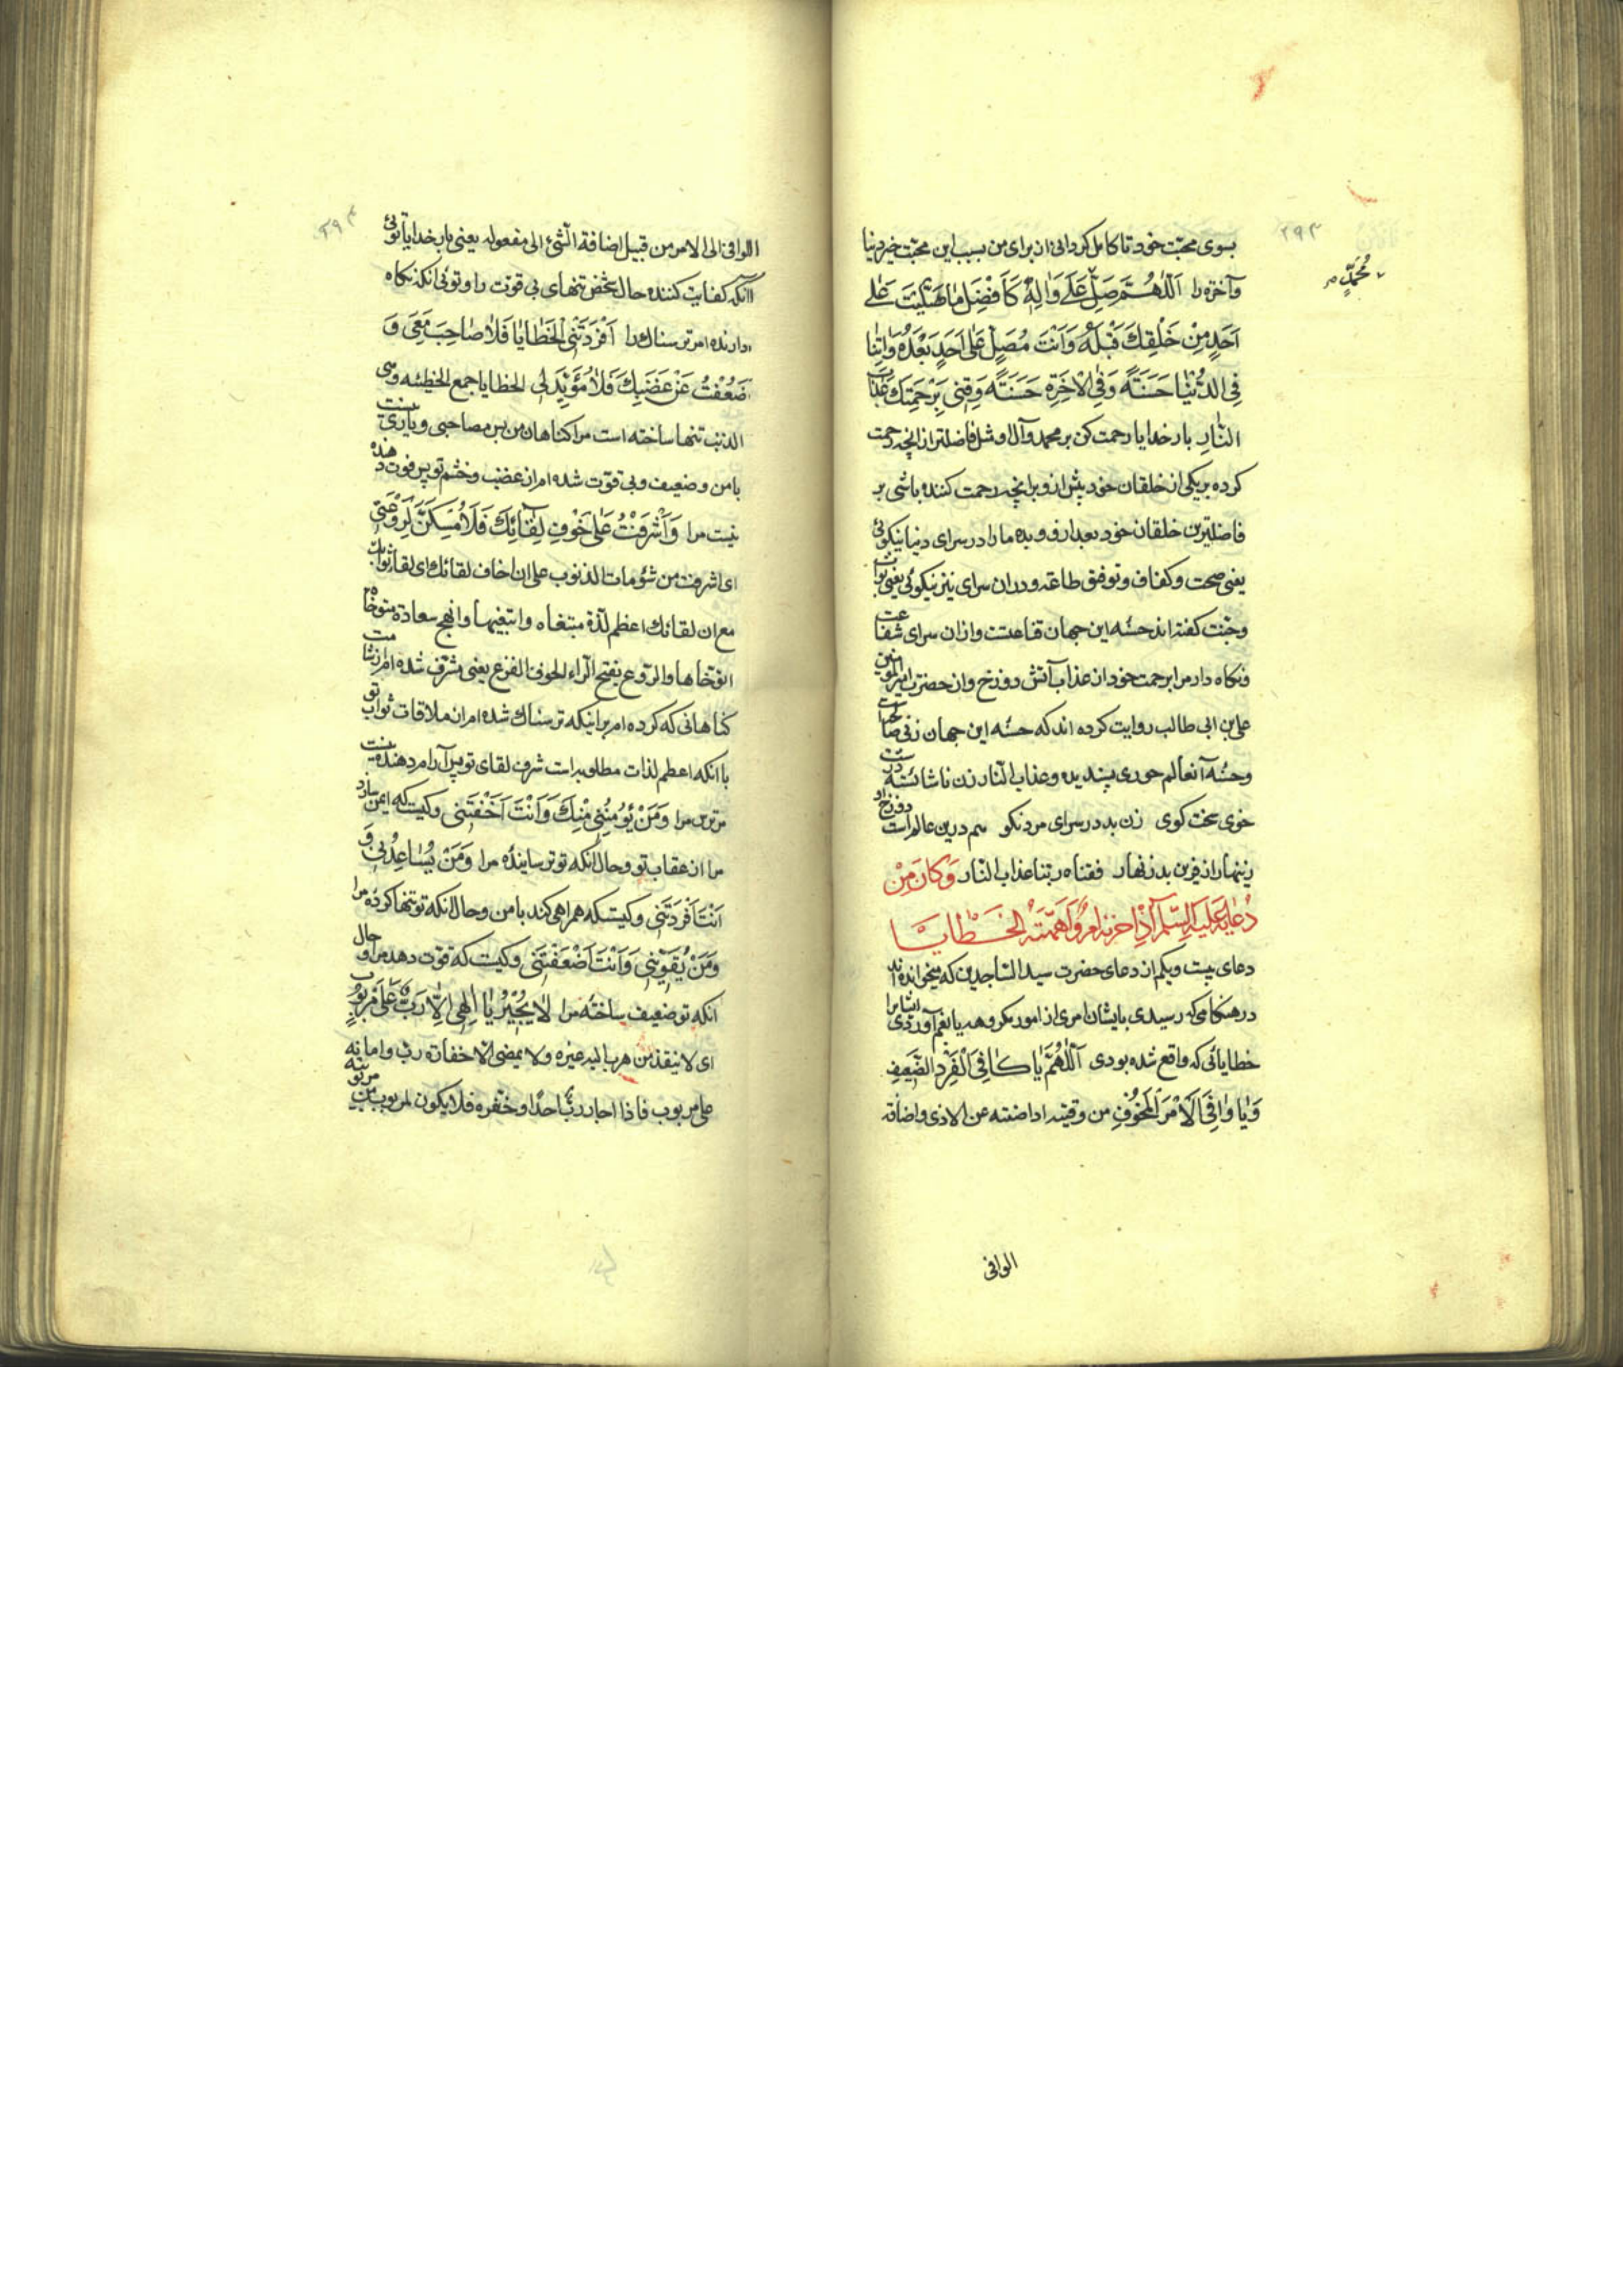 ۲۹۳
بسوی محبّت خود تا کامل کردانی از برای من بسبب این محبّت خیر دنیا
وآخرة را اَللّٰهُمَّ صَلِّ عَلٰی وَاٰلِهِ کَاَفْضَلِ مٰا صَلَّیْتَ عَلٰی
مُحَمَّدٍ
اَحَدٍ مِنْ خَلْقِكَ قَبْلَهُ وَاَنْتَ مُصَلٍّ عَلٰی اَحَدٍ بَعْدَهُ وَاٰتِنٰا
فِی الدُّنْیٰا حَسَنَةً وَفِی الْاٰخِرَةِ حَسَنَةً وَقِنِی بِرَحْمَتِكَ عَذٰابَ
النّٰارِ بار خدایا رحمت کن بر محمد وآل او مثل فاضلتر از انچه رحمت
کرده بر یکی از خلقان خود پیش از و وبرانچه رحمت کننده باشی بر
فاضلترین خلقان خود بعد از و وبده ما را در سرای دنیا نیکوئی
یعنی صحت وکفاف وتوفیق طاعة ودران سرای نیز نیکوئی یعنی ثواب
وجنّت کفته اند حسنه این جهان قناعتست وازان سرای شفاعت
ونکاه دار مرا برحمت خود از عذاب آتش دوزخ واز حضرت امیرالمؤمنین
علی بن ابی طالب روایت کرده اند که حسنه این جهان زنی صالحه است
وحسنه آنعالم حوری پسندیده وعذاب النار زن ناشائسته درشت
خوی سخت کوی زن بد در سرای مرد نکو هم درین عالم است دوزخ او
زینهار از قرین بد زنهار فقناه ربنا عذاب النّار وَکانَ مِنْ
دُعٰائِهِ عَلَیْهِ السَّلٰمُ اِذٰا حَزَنَهُ اَمْرٌ وَاَهَمَّتْهُ الْخَطٰایٰا
دعای بیست ویکم از دعای حضرت سید السّاجدین که میخوانده اند
در هنکامی که رسیدی بایشان امری از امور مکروهه یا بغم آوردی ایشانرا
خطایائی که واقع شده بودی اَللّٰهُمَّ یٰا کٰافِیَ الْفَرْدِ الضَّعِیفِ
وَیٰا وٰاقِیَ الْاَمْرِ الْمَخُوفِ من وقیته اذا ضنته عن الاذی واضافة
الواقی
۲۹۴
الواقی الی الامر من قبیل اضافة الشئ الی مفعوله یعنی بار خدایا توئی
آنکه کفایت کننده حال شخص تنهای بی قوّت را وتوئی انکه نکاه
دارنده امر ترسناك را اَفْرَدَتْنِی الْخَطٰایٰا فَلٰا صٰاحِبَ مَعِی وَ
ضَعُفْتُ عَنْ غَضَبِكَ فَلٰا مُؤَیِّدَ لِی الخطایا جمع الخطیئه وهی
الذنب تنها ساخته است مرا کناهان من پس مصاحبی ویاری نیست
با من وضعیف وبی قوّت شده ام از غضب وخشم تو پس قوت دهنده
نیست مرا وَاَشْرَفْتُ عَلٰی خَوْفِ لِقٰائِكَ فَلٰا مُسَکِّنَ لِرَوْعَتِی
ای اشرفت من شؤمات الذنوب علی ان اخاف لقائك ای لقاء ثوابك
مع ان لقائك اعظم لذّة مبتغاه وابتغیها وانهج سعادة متوخاه
اتوخاها والرّوع بفتح الرّاء الخوف الفزع یعنی مشرف شده ام از شامت
کناهانی که کرده ام براینکه ترسناك شده ام از ملاقات ثواب تو
با انکه اعظم لذات مطلوبه است شرف لقای تو پس آرام دهنده نیست
مر ترس مرا وَمَنْ یُؤْمِنُنِی مِنْكَ وَاَنْتَ اَخَفْتَنِی وکیست که ایمن سازد
مرا از عقاب تو وحال آنکه تو ترسایندهٔ مرا وَمَنْ یُسٰاعِدُنِی وَ
اَنْتَ اَفْرَدْتَنِی وکیستکه همراهی کند با من وحال انکه تو تنها کردهٔ مرا
وَمَنْ یُقَوِّینِی وَاَنْتَ اَضْعَفْتَنِی وکیست که قوت دهد مرا وحال
انکه تو ضعیف ساختهٔ مرا لٰا یُجِیرُ یٰا اِلٰهِی اِلّٰا رَبٌّ عَلٰی مَرْبُوبٍ
ای لا ینقذ من هرب الیه غیره ولا یمضی الا خفارة رب وامانه
علی مربوب فاذا اجار ربّ احدا وخفره فلا یکون لمربوب